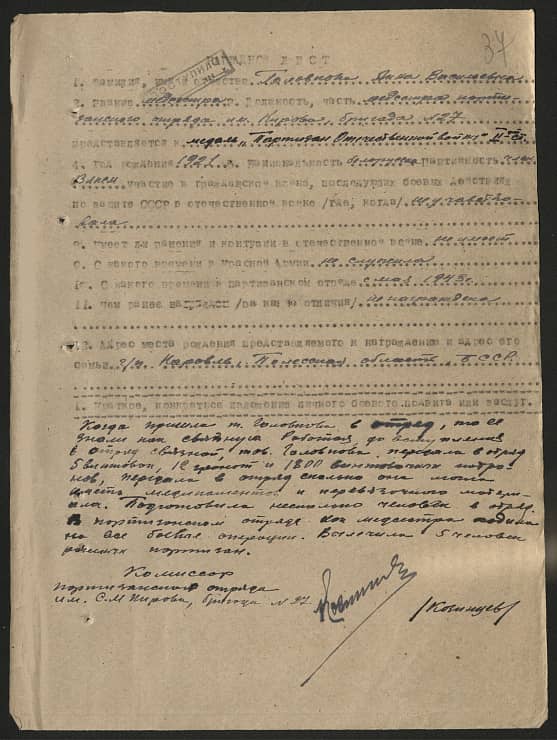 37
НАГРАДНОЙ ЛИСТ
1. Фамилия, имя и отчество Головнова Анна Васильевна
2. Звание медсестра 3. Должность, часть медсестра парти-
занского отряда им. Кирова, бригада № 27
представляется к медаль "Партизан Отечественной войны" II ст.
4. Год рождения 1921 г. национальность белоруска партийность
участие в гражданской войне, последующих боевых действиях
по защите СССР в отечественной войне /где, когда/ не участво-
вала
имеет ли ранения и контузии в отечественной войне не имеет
9. С какого времени в Красной Армии не служила
10. С какого времени в партизанском отряде с мая 1943 г.
11. Чем ранее награжден /за какие отличия/ не награждена
12. Адрес места рождения представляемого к награждению и адрес его
семьи Наровль, Полесская область, БССР
1. Краткое, конкретное изложение личного боевого подвига или заслуг.
Когда пришла т. Головнова в отряд, то её
знали как связную Работая, до вступления
в отряд связной, тов. Головнова передала в отряд
5 винтовок, 12 гранат и 1800 винтовочных патро-
нов, передала в отряд сколько она могла
медикаментов и перевязочного матери-
ала. Подготовила несколько человек в отряд.
В партизанском отряде как медсестра ходила
на все боевые операции. Вылечила 5 человек
раненых партизан.
Комиссар
партизанского отряда
им. С.М Кирова, бригада № 27
/Ковинцев/